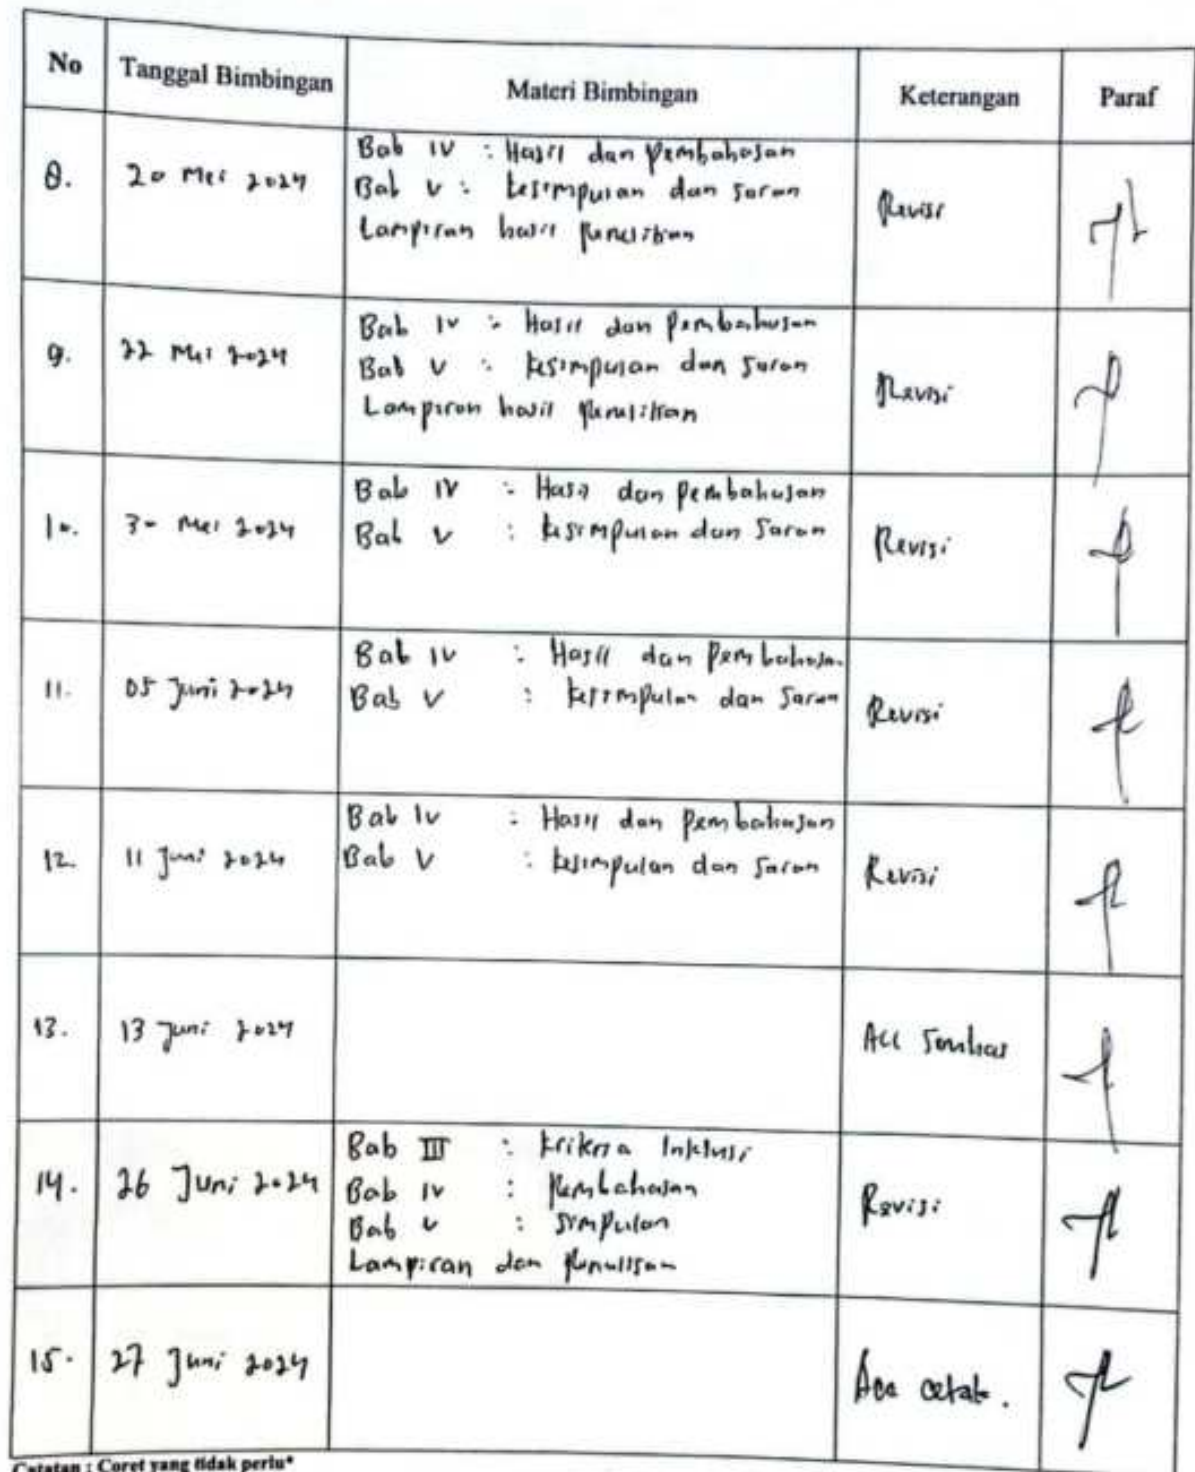 No Tanggal Bimbingan Materi Bimbingan Keterangan Paraf
8. 20 Mei 2024 Bab IV : Hasil dan Pembahasan
Bab V : kesimpulan dan saran
Lampiran hasil Penelitian
Revisi
9. 22 Mei 2024 Bab IV : Hasil dan Pembahasan
Bab V : kesimpulan dan saran
Lampiran hasil Penelitian
Revisi
10. 30 Mei 2024 Bab IV : Hasil dan Pembahasan
Bab V : kesimpulan dan Saran
Revisi
11. 05 Juni 2024 Bab IV : Hasil dan Pembahasan
Bab V : kesimpulan dan Saran
Revisi
12. 11 Juni 2024 Bab IV : Hasil dan Pembahasan
Bab V : kesimpulan dan Saran
Revisi
13. 13 Juni 2024 Acc Semhas
14. 26 Juni 2024 Bab III : kriteria Inklusi
Bab IV : Pembahasan
Bab V : simpulan
Lampiran dan Penulisan
Revisi
15. 27 Juni 2024 Acc cetak.
Catatan : Coret yang tidak perlu*